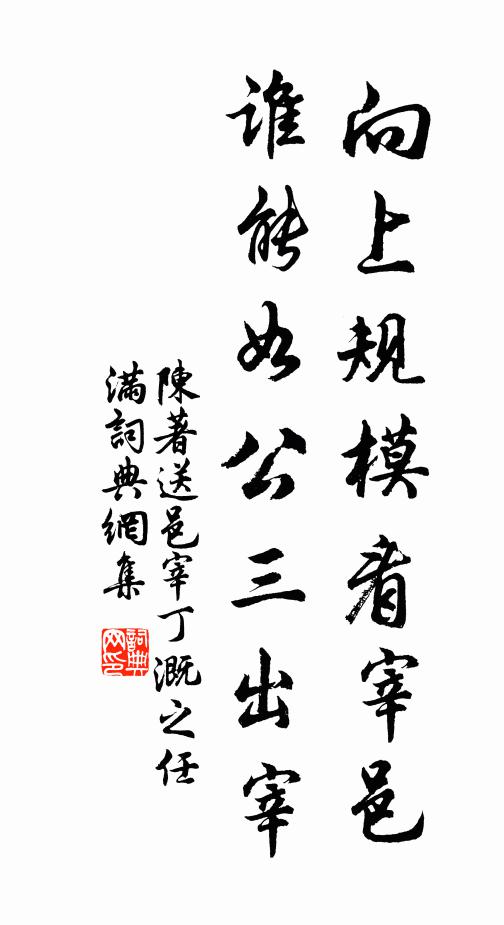 向上规模看宰邑
谁能如公三出宰
陳著送邑宰丁溉之任
滿詞典網集
詞典网印